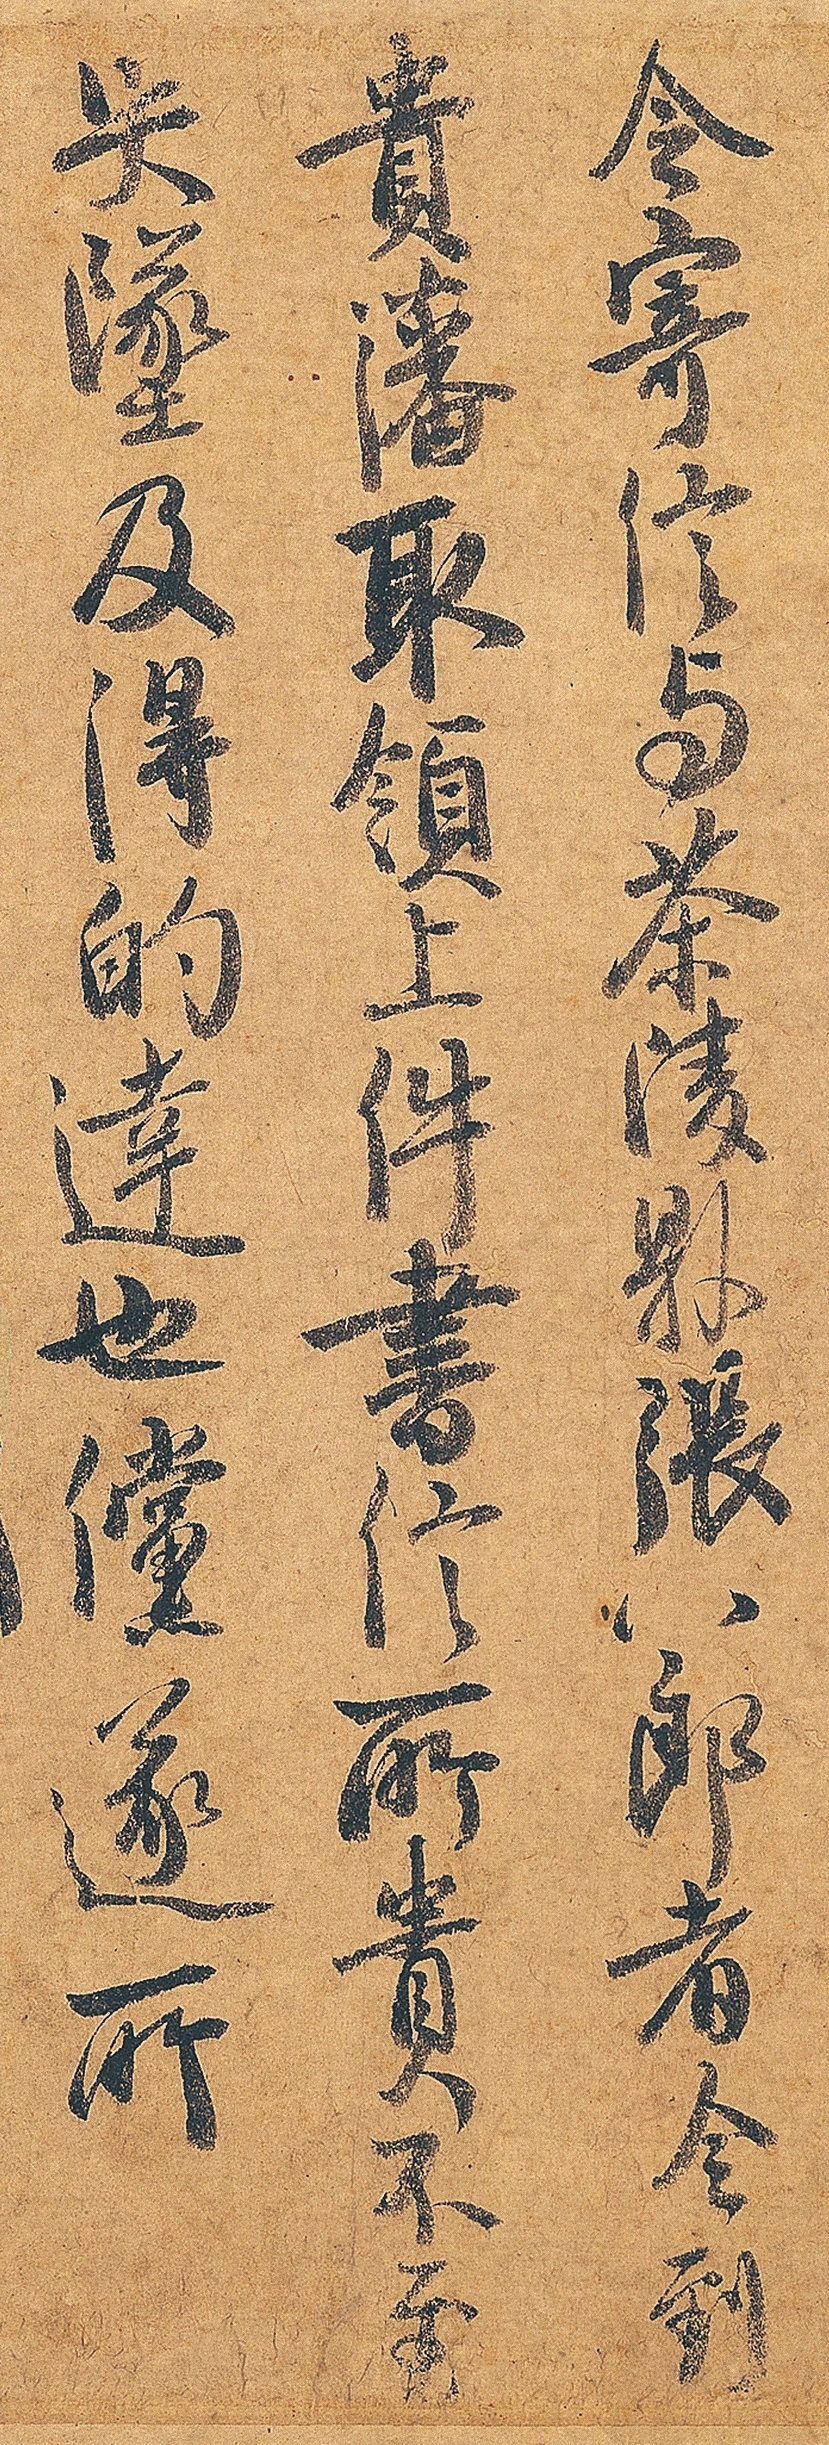 令寄信与茶陵縣張八郎者令到
貴藩取領上件書信所貴不至
失墜及得的達也儻遂所